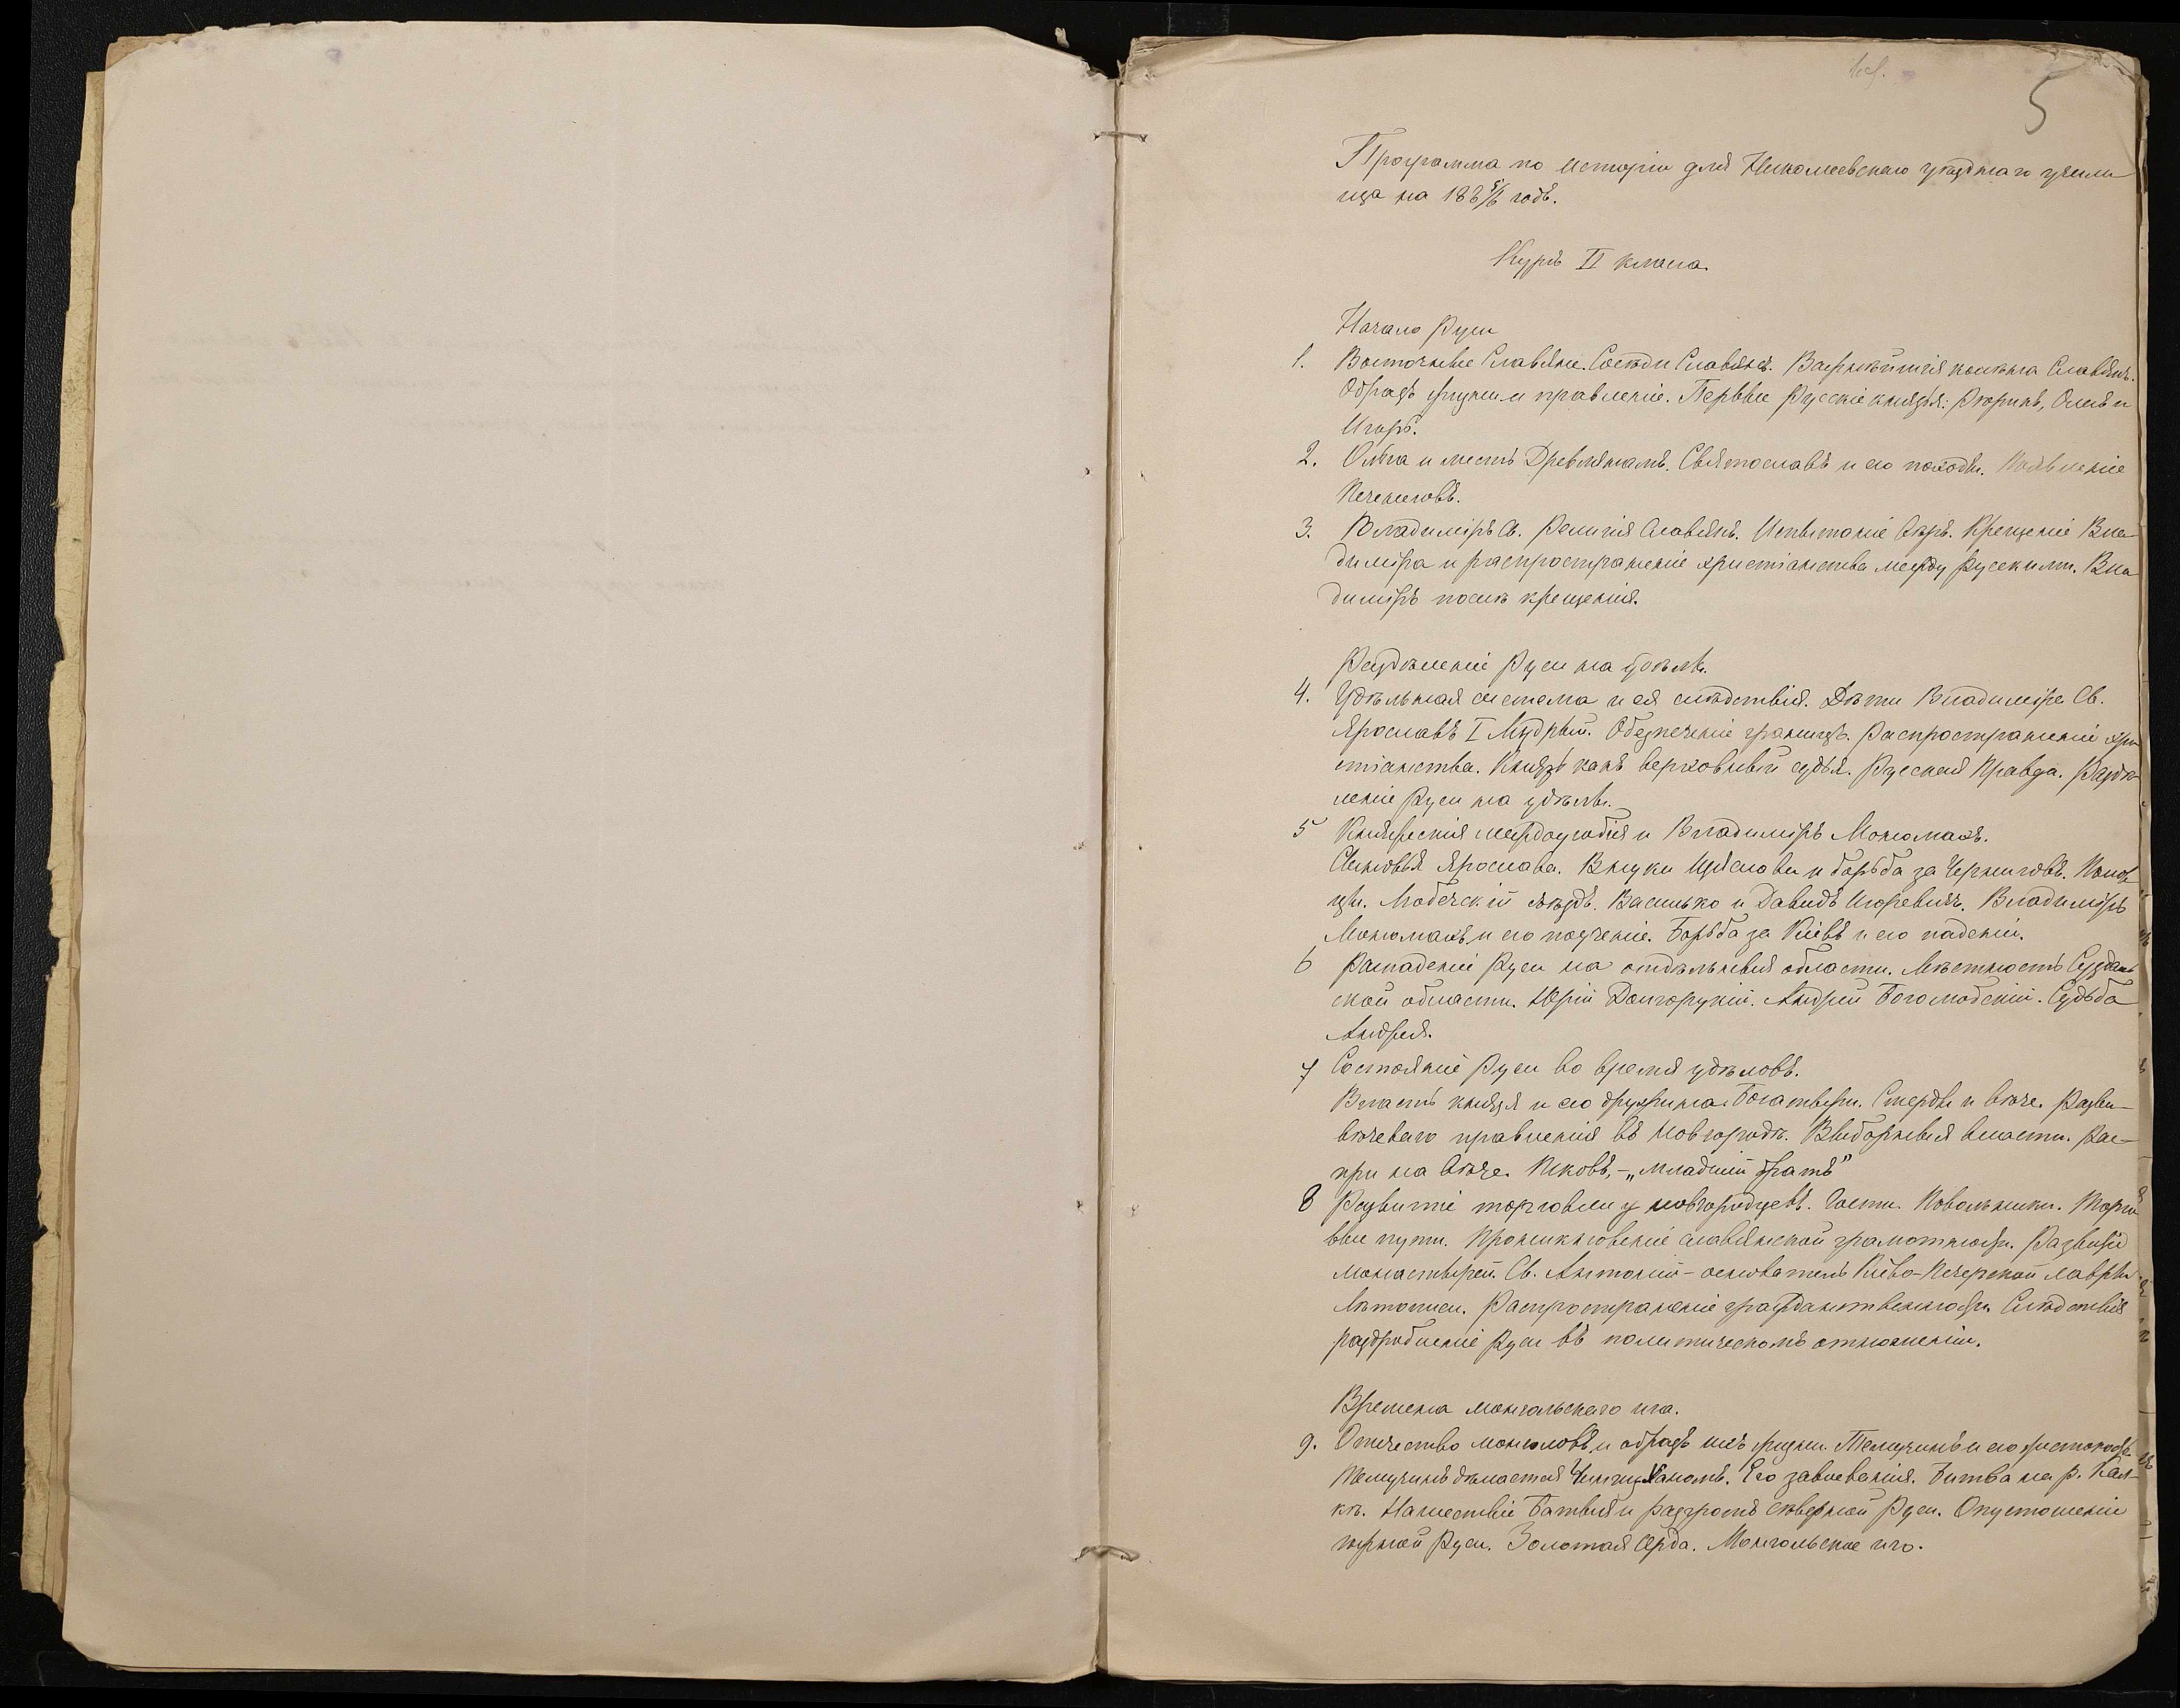 5
Программа по исторіи для Николаевскаго уѣзднаго учили
ща на 1885/6 годъ.
Курсъ II класса.
Начало Руси
1. Восточные Славяне. Сосѣди Славянъ. Важнѣйшія колѣна Славянъ.
Образъ жизни и правленіе. Первые Русскіе князья: Рюрикъ, Олегъ и
Игорь.
2. Ольга и месть Древлянамъ. Святославъ и его походы. Появленіе
Печенеговъ.
3. Владиміръ Св. Религія Славянъ. Испытаніе вѣръ. Крещеніе Вла-
диміра и распространеніе христіанства между Русскими. Вла
диміръ послѣ крещенія.
Раздѣленіе Руси на удѣлы.
4. Удѣльная система и ея слѣдствія. Дѣти Владиміра Св.
Ярославъ I Мудрый. Обезпеченіе границъ. Распространеніе хри
стіанства. Князь какъ верховный судья. Русская Правда. Раздѣ-
леніе Руси на удѣлы.
5 Княжескія междоусобія и Владиміръ Мономахъ.
Сыновья Ярослава. Внуки Изяслава и борьба за Черниговъ. Полов
цы. Любечскій съѣздъ. Василько и Давидъ Игоревичъ. Владиміръ
Мономахъ и его поученіе. Борьба за Кіевъ и его паденіе.
6 Распаденіе Руси на отдѣльныя области. Мѣстность Суздаль
ской области. Юрій Долгорукій. Андрей Боголюбскій. Судьба
Андрея.
7 Состояніе Руси во время удѣловъ.
Власть князя и его дружина. Богатыри. Смерды и вѣче. Разви-
вѣчеваго правленія въ Новгородѣ. Выборныя власти. Рас-
при на вѣче. Псковъ, - „младшій братъ"
8 Развитіе торговли у новгородцевъ. Гости. Повольники. Торго
вые пути. Проникновеніе славянской грамотности. Развитіе
монастырей. Св. Антоній - основатель Кіево-Печерской лавры
Лѣтописи. Распространеніе гражданственности. Слѣдствія
раздробленіе Руси въ политическомъ отношеніи.
Времена монгольскаго ига.
9. Отечество монголовъ и образъ ихъ жизни. Темучинъ и его
Темучинъ дѣлается Чингизъ Ханомъ. Его завоеванія. Битва на р. Кал-
кѣ. Нашествіе Батыя и разгромъ сѣверной Руси. Опустошеніе
южной Руси. Золотая Орда. Монгольское иго.